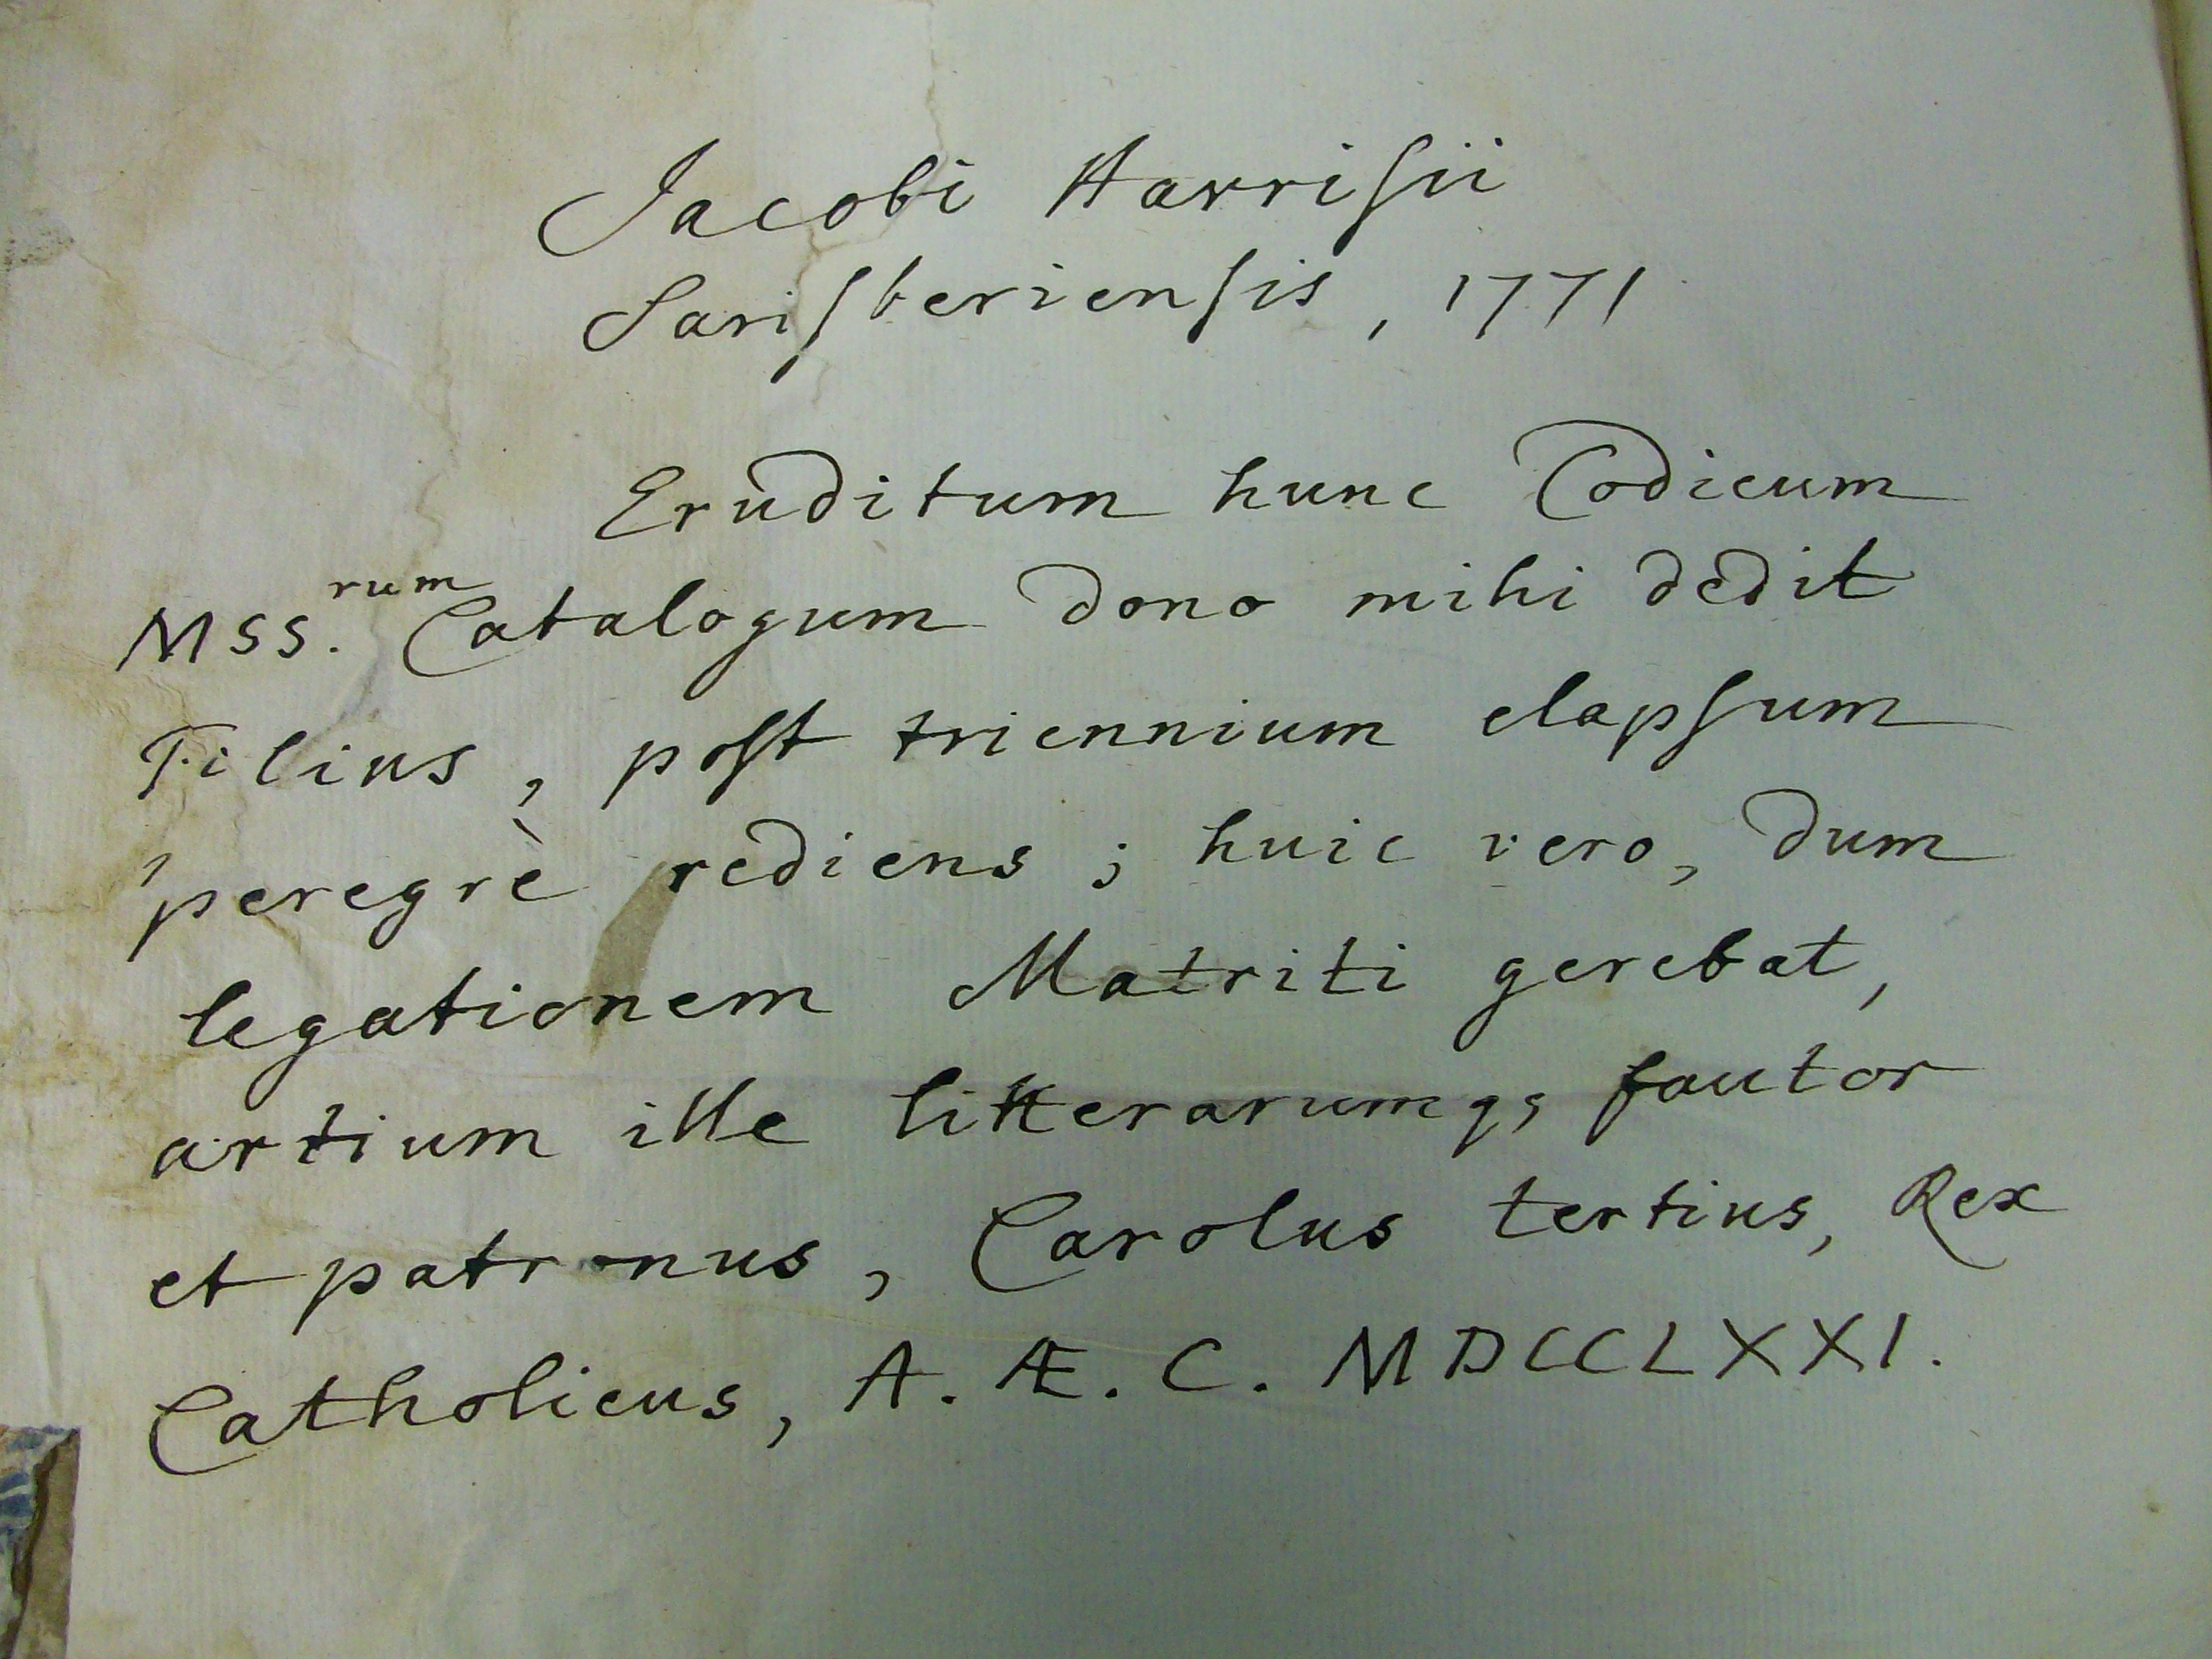 Jacobi Harriſii
Sariſberienſis, 1771
Eruditum hunc Codicum
MSS.rum Catalogum dono mihi dedit
Filius, poſt triennium elapſum
peregrè rediens; huic vero, dum
legationem Matriti gerebat,
artium ille litterarumq; fautor
et patronus, Carolus tertius, Rex
Catholicus, A. Æ. C. MDCCLXXI.